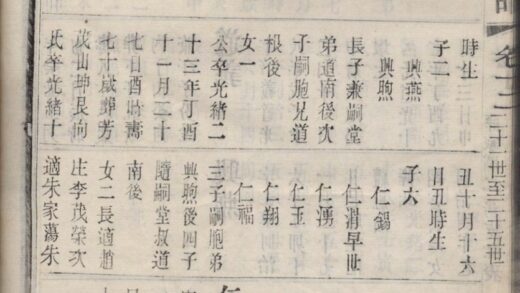 卷十二 二十一世至二十五世
時生
子二
興燕
興煦
長子兼嗣堂
弟道南後次
子嗣胞兄道
根後
女一
公卒光緒二
十三年丁酉
十一月二十
七日酉時壽
七十歲葬芳
茂山坤艮向
氏卒光緒十
丑十月十六
日丑時生
子六
仁錫
仁渭早世
仁湧
仁玉
仁翔
仁福
三子嗣胞弟
興煦後四子
隨嗣堂叔道
南後
女二長適趙
庄李茂榮次
適朱家蕩朱